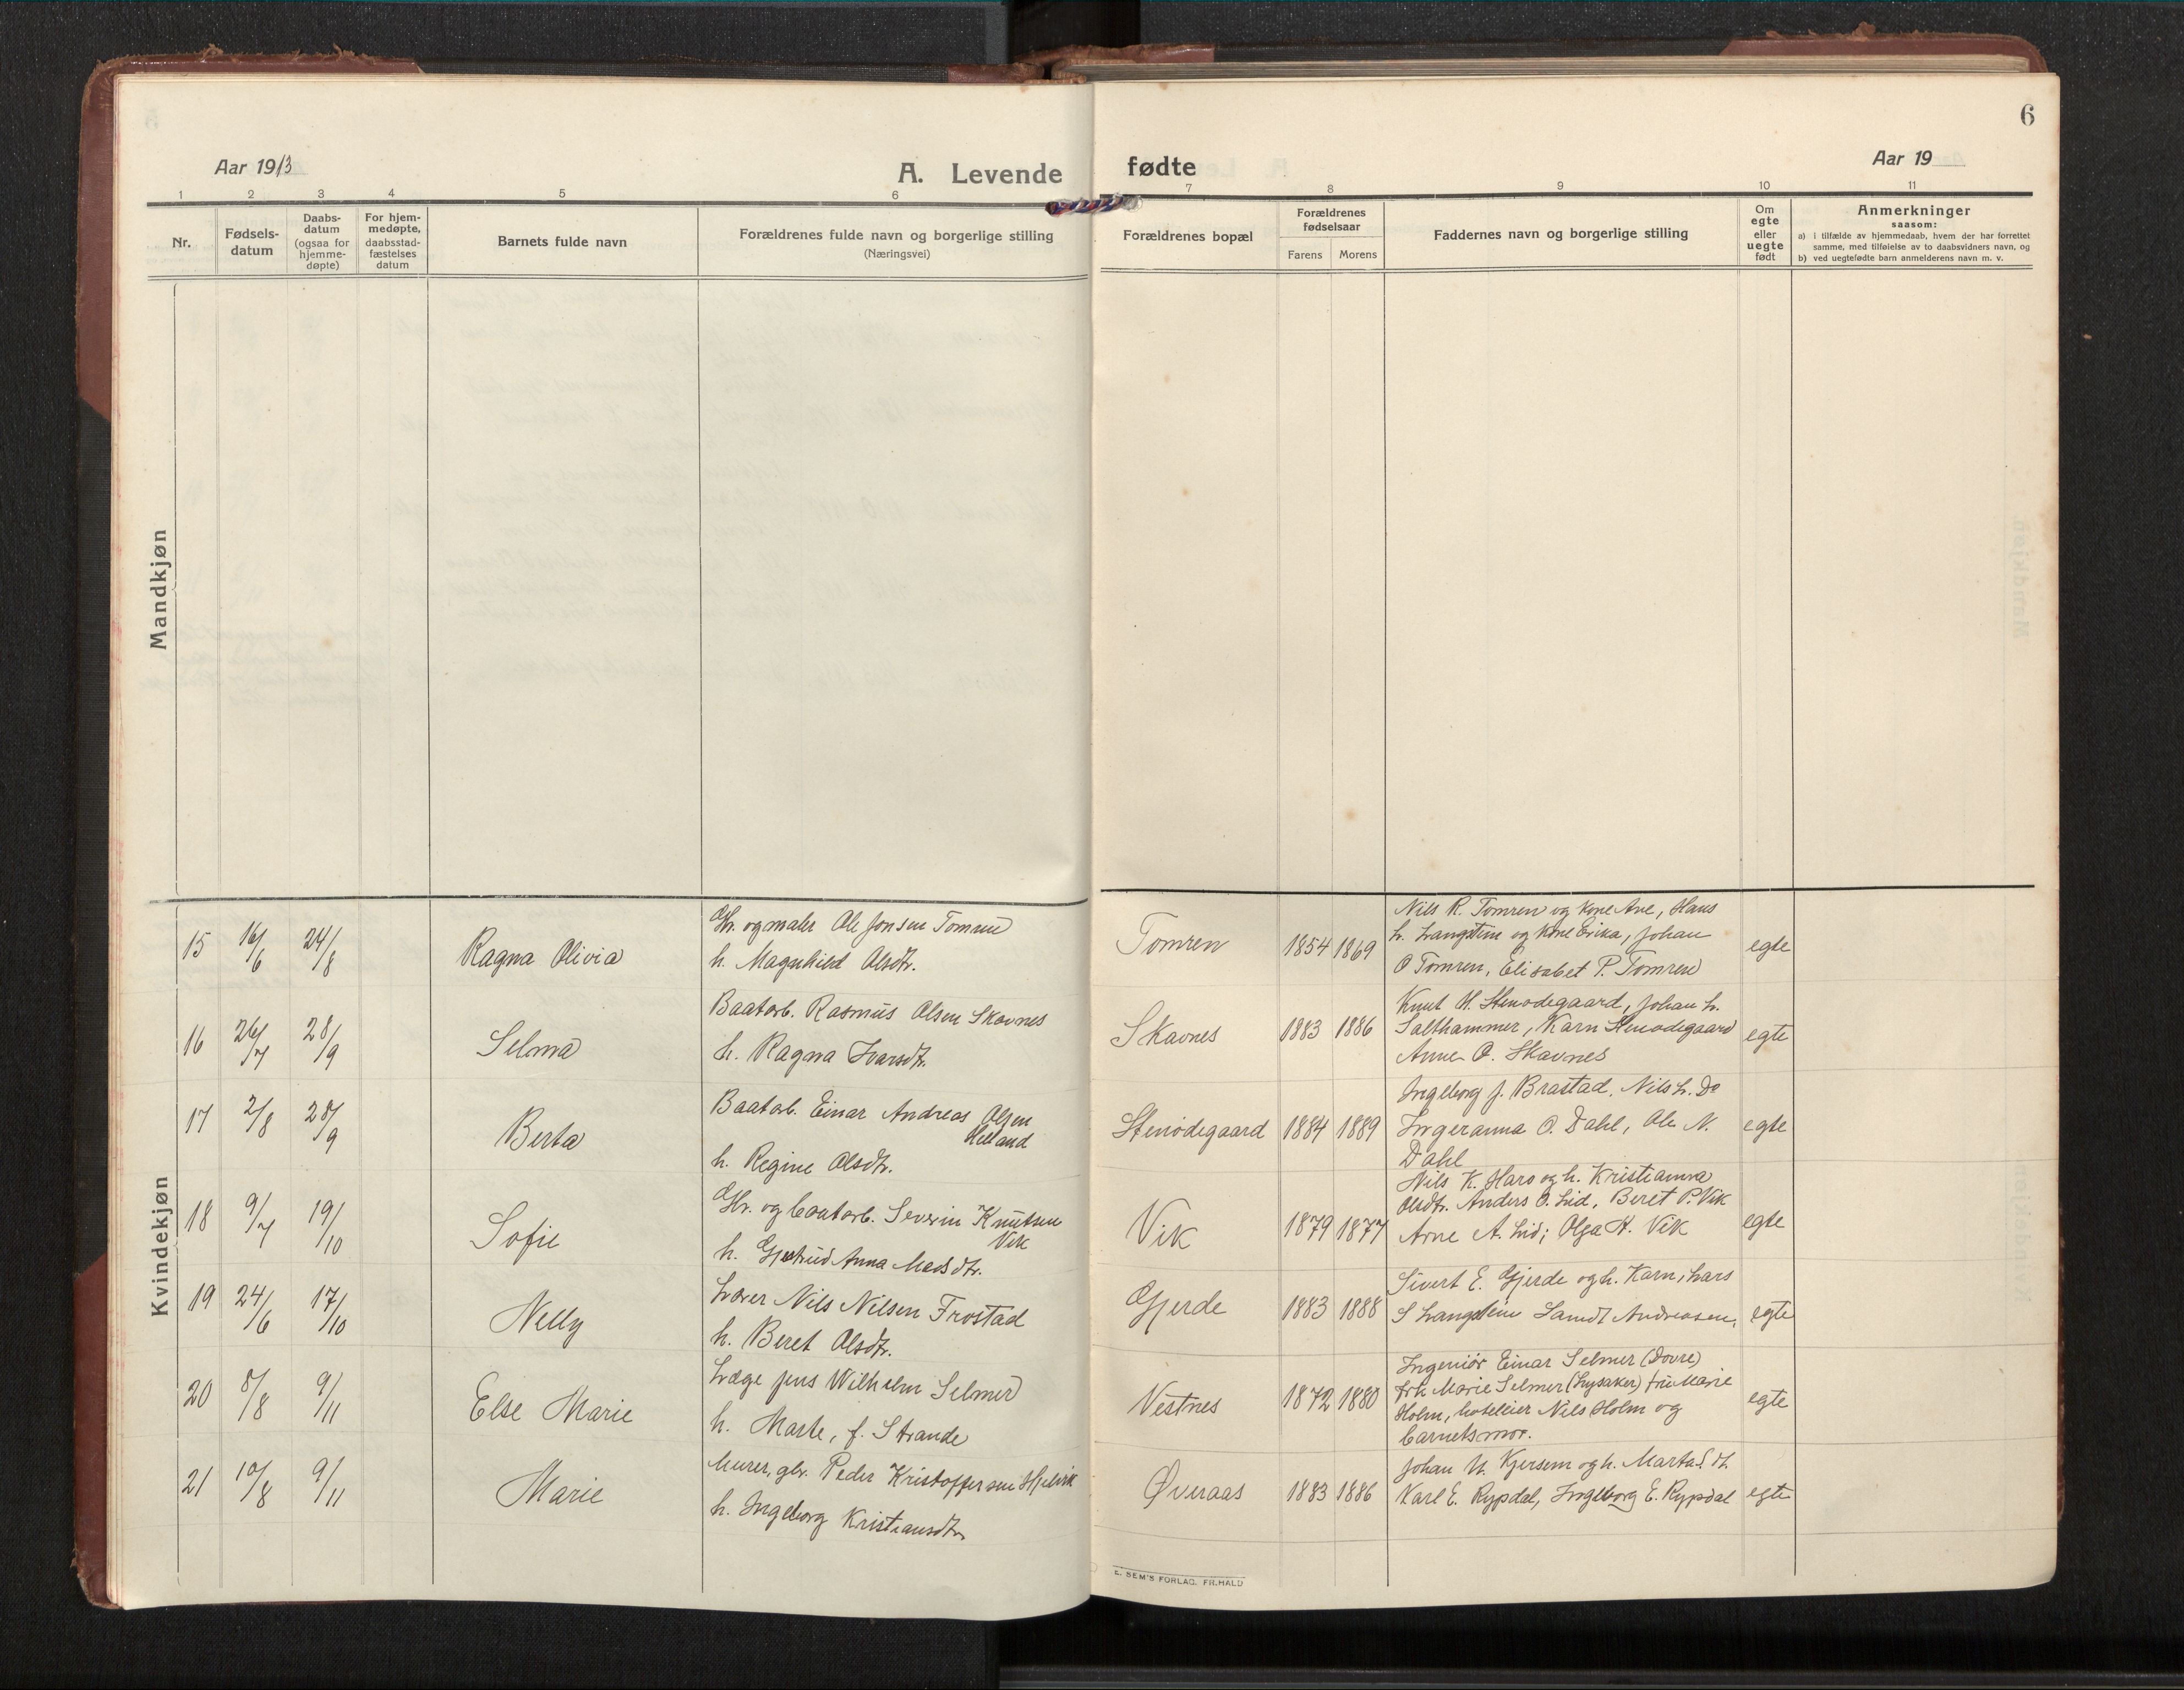 6
Aar 1913
A. Levende fødte
Aar 19
1 2 3 4 5 6 7 8 9 10 11
Nr.
Fødsels-
datum
Daabs-
datum
(ogsaa for
hjemme-
døpte)
For hjem-
medøpte,
daabsstad-
fæstelses
datum
Barnets fulde navn
Forældrenes fulde navn og borgerlige stilling
(Næringsvei)
Forældrenes bopæl
Forældrenes
fødselsaar
Farens Morens
Faddernes navn og borgerlige stilling
Om
egte
eller
uegte
født
Anmerkninger
saasom:
a) i tilfælde av hjemmedaab, hvem der har forrettet
samme, med tilføielse av to daabsvidners navn, og
b) ved uegtefødte barn anmelderens navn m. v.
Mandkjøn
Kvindekjøn
15 16/6 24/8 Ragna Olivia
Gbr. og maler Ole Jonsen Tomren
h. Magnhild Olsdtr.
Tomren 1854 1869
Nils R. Tomren og kone Ane, Hans
L. Langstein og kone Erika, Johan
O Tomren, Elisabet P. Tomren
egte
16 26/7 28/9 Selma
Baatarb. Rasmus Olsen Skavnes
h. Ragna Ivarsdtr.
Skavnes 1883 1886
Knut H. Stenødegaard, Johan L.
Salthammer, Karn Stenødegaard
Anne O. Skavnes
egte
17 2/8 28/9 Berta
Baatarb. Einar Andreas Olsen
Helland
h. Regine Olsdtr.
Stenødegaard 1884 1889
Ingeborg J. Brastad, Nils L. Do
Ingeranna O. Dahl, Ole N.
Dahl
egte
18 9/7 19/10 Sofie
Gbr. og baatarb. Severin Knutsen
Vik
h. Gjertrud Anna Madsdtr.
Vik 1879 1877
Nils K. Haro og h. Kristianna
Olsdtr. Anders O. Lid, Beret P. Vik
Arne A. Lid; Olga K. Vik
egte
19 24/6 17/10 Nelly
Lærer Nils Nilsen Frostad
h. Beret Olsdtr.
Gjerde 1883 1888
Sivert E. Gjerde og h. Karn, Lars
S Langstein Andreasen,
egte
20 8/8 9/11 Else Marie
Læge Jens Wilhelm Selmer
h. Marte, f. Strande
Vestnes 1872 1880
Ingeniør Einar Selmer (Dovre)
frk Marie Selmer (Lysaker) fru Marie
Holm, hoteleier Nils Holm og
barnets mor.
egte
21 10/8 9/11 Marie
Murer, gbr. Peder Kristoffersen Hjelvik
h. Ingeborg Kristiansdtr.
Øveraas 1883 1886
Johan N. Kjersem og h. Marta S. dt.
Karl E. Rypdal, Ingeborg E. Rypdal
egte
E. SEM'S FORLAG. FR.HALD